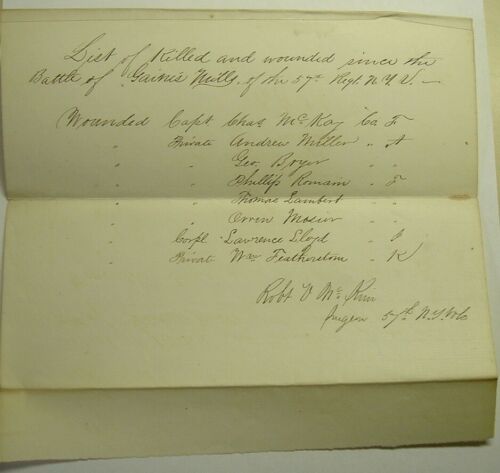 List of Killed and wounded since the
Battle of Gaines Mills, of the 57th Regt. N.Y.V. —
Wounded Capt Chas McKay Co. F
" Private Andrew Miller " A
" " Geo. Boyer " "
" " Phillip Romain " F
" " Thomas Lambert " "
" " Orren Mosier " "
" Corpl Lawrence Lloyd "
" Private Wm Featherstone " K
Robt V McKim
Surgeon 57th N.Y. Vols